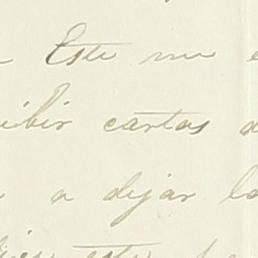 Este me
ibir cartas
a dejar la
este